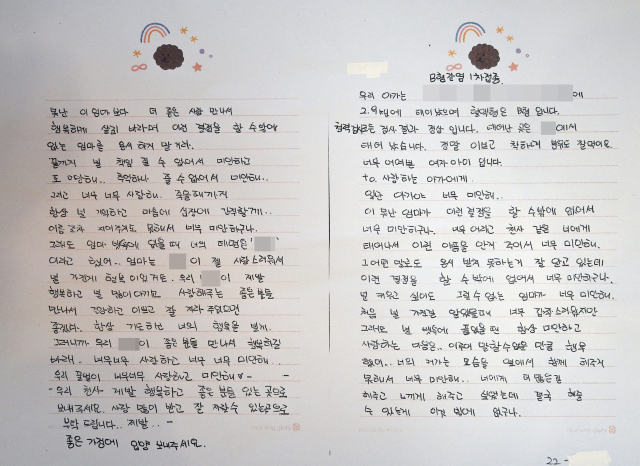 못난 이 엄마보다 더 좋은 사람 만나서
행복하게 살길 바라며 이런 결정을 할 수 밖에
없는 엄마를 용서 하지 말거라.
끝까지 널 책임 질 수 없어서 미안하고
또 미안해.. 추억하나 줄 수 없어서 미안해..
그리고 너무 너무 사랑해. 죽을때까지
항상 널 기억하고 마음에 심장에 간직할게..
이름 조차 지어주지도 못해서 너무 미안하구나.
그래도 엄마 뱃속에 있을때 너의 태명은'
이라고 했어.. 엄마는 이 젤 사랑스러워서
널 가진게 행복 이었거든. 우리 이 제발
행복하고 널 많이 아끼고 사랑해주는 좋은 분들
만나서 건강하고 이쁘고 잘 자라 주었으면
좋겠다. 항상 기도하면 너의 행복을 빌게.
그러니까 우리 좋은 분들 만나서 행복하길
바래.. 너무너무 사랑하고 너무 너무 미안해...
우리 꿀벌이 너무너무 사랑하고 미안해
- 우리 천사 제발 행복하고 좋은 분들 있는 곳으로
보내주세요. 사랑 많이 받고 잘 자랄수 있는곳으로
부탁 드립니다.. 제발.. -
좋은 가정에 입양 보내주세요.
B형간염 1차접종.
우리 아가는 에
2.9kg에 태어났으며 혈액형은 B형 입니다.
청력검사등 검사 결과 정상 입니다. 태어난 곳은 에서
태어 났습니다. 정말 이쁘고 착하게 밤잠도 잘자요.
너무 어여쁜 여자 아이 입니다.
to. 사랑하는 아가에게.
일단 아가야 너무 미안해..
이 못난 엄마가 이런 결정을 할 수밖에 없어서
너무 미안하구나. 너무 어리고 천사 같은 너에게
태어나서 이런 아픔을 안겨 주어서 너무 미안해.
그 어떤 말로도 용서 받지 못하는거 잘 알고 있는데
이런 결정을 할 수 밖에 없어서 너무 미안하구나.
널 키우고 싶어도 그럴 수 없는 엄마가 너무 미안해.
처음 널 가진걸 알았을때 너무 갑작스러웠지만
그래도 널 뱃속에 품었을 땐 항상 미안하고
사랑하는 마음도.. 이루 말할 수 없을 만큼 행복
했어.. 너의 커가는 모습을 옆에서 함께 해주지
못해서 너무 미안해.. 너에게 더 많은걸
해주고 느끼게 해주고 싶었는데 결국 해줄
수 있는게 이것 밖에 없구나.
22 -